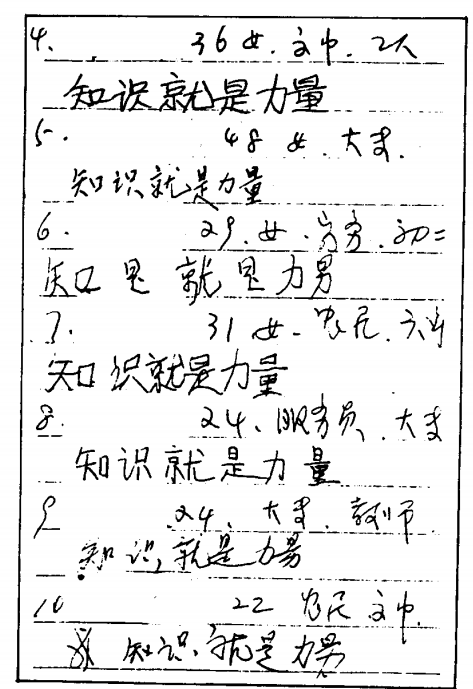 4. 36 女. 高中. 工人
知识就是力量
5. 48 女. 大专.
知识就是力量
6. 29. 女. 劳务. 初二
知是就是力男
7. 31 女. 农民. 六年
知识就是力量
8. 24、服务员、大专
知识就是力量
9 24、大专、教师
知识,就是力量
10 22 农民 文中.
知识、就是力男